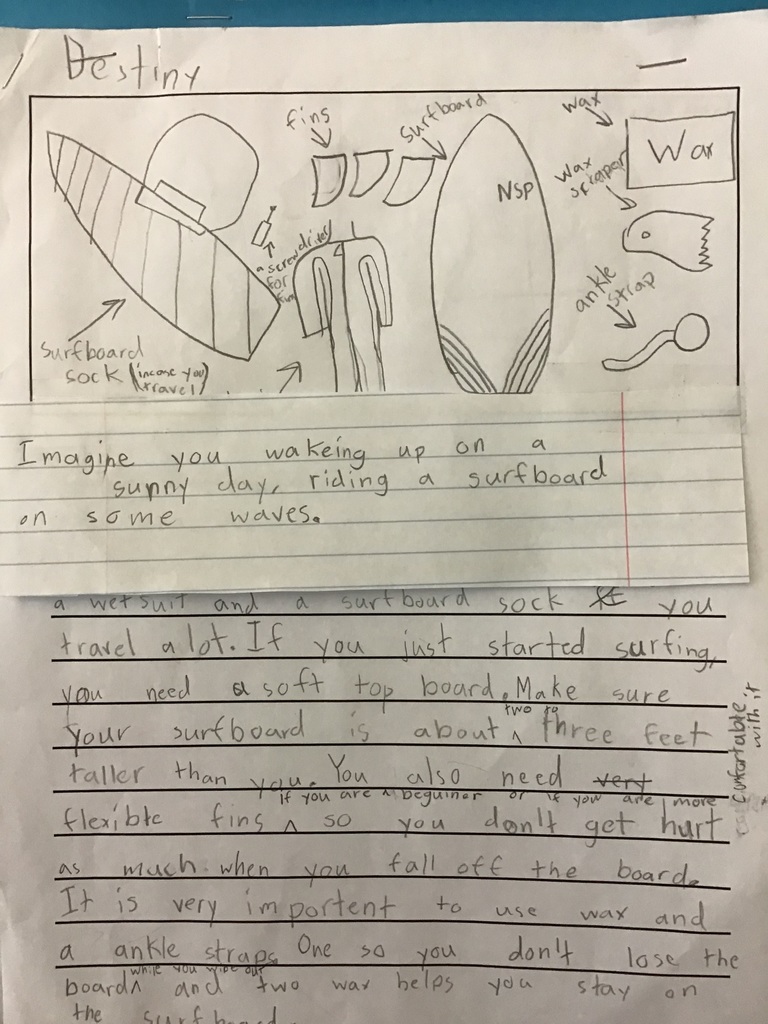 Destiny
fins
Surfboard
wax
Wax
NSP
wax
scraper
a screwdriver
for
fins
ankle
strap
Surfboard
sock (incase you
travel)
Imagine you wakeing up on a
sunny day, riding a surfboard
on some waves.
a wetsuit and a surfboard sock if you
travel a lot. If you just started surfing,
you need a soft top board. Make sure
two to
your surfboard is about ^ three feet
taller than you. You also need very
if you are a beguiner or if you are more
cumfortable
with it
flexible fins ^ so you don't get hurt
as much when you fall off the board.
It is very importent to use wax and
a ankle straps One so you don't lose the
while you wipe out
board ^ and two wax helps you stay on
the surfboard.